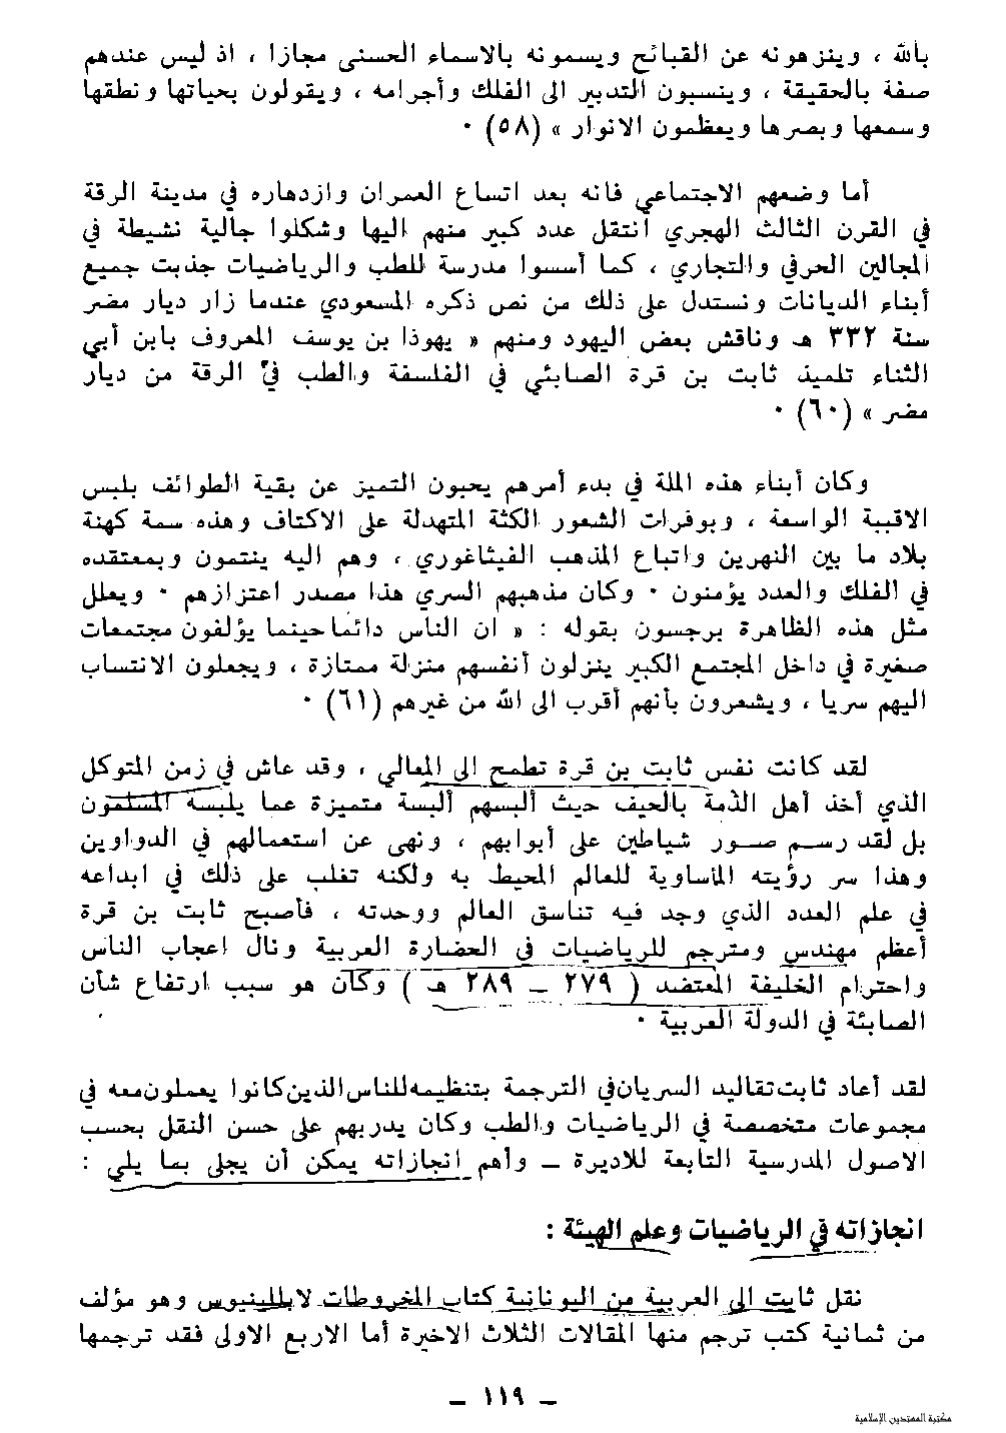 بالله ، وينزهونه عن القبائح ويسمونه بالاسماء الحسنى مجازا ، اذ ليس عندهم
صفة بالحقيقة ، وينسبون التدبير الى الفلك وأجرامه ، ويقولون بحياتها ونطقها
وسمعها وبصرها ويعظمون الانوار » (٥٨) ٠
أما وضعهم الاجتماعي فانه بعد اتساع العمران وازدهاره في مدينة الرقة
في القرن الثالث الهجري انتقل عدد كبير منهم اليها وشكلوا جالية نشيطة في
المجالين الحرفي والتجاري ، كما أسسوا مدرسة للطب والرياضيات جذبت جميع
أبناء الديانات ونستدل على ذلك من نص ذكره المسعودي عندما زار ديار مضر
سنة ٣٣٢ هـ وناقش بعض اليهود ومنهم « يهوذا بن يوسف المعروف بابن أبي
الثناء تلميذ ثابت بن قرة الصابئي في الفلسفة والطب في الرقة من ديار
مضر » (٦٠) ٠
وكان أبناء هذه الملة في بدء أمرهم يحبون التميز عن بقية الطوائف بلبس
الاقبية الواسعة ، وبوفرات الشعور الكثة المتهدلة على الاكتاف وهذه سمة كهنة
بلاد ما بين النهرين واتباع المذهب الفيثاغوري ، وهم اليه ينتمون وبمعتقده
في الفلك والعدد يؤمنون ٠ وكان مذهبهم السري هذا مصدر اعتزازهم ٠ ويعلل
مثل هذه الظاهرة برجسون بقوله : « ان الناس دائما حينما يؤلفون مجتمعات
صغيرة في داخل المجتمع الكبير ينزلون أنفسهم منزلة ممتازة ، ويجعلون الانتساب
اليهم سريا ، ويشعرون بأنهم أقرب الى الله من غيرهم (٦١) ٠
لقد كانت نفس ثابت بن قرة تطمح الى المعالي ، وقد عاش في زمن المتوكل
الذي أخذ أهل الذمة بالحيف حيث ألبسهم ألبسة متميزة عما يلبسه المسلمون
بل لقد رسم صور شياطين على أبوابهم ، ونهى عن استعمالهم في الدواوين
وهذا سر رؤيته المأساوية للعالم المحيط به ولكنه تغلب على ذلك في ابداعه
في علم العدد الذي وجد فيه تناسق العالم ووحدته ، فأصبح ثابت بن قرة
أعظم مهندس ومترجم للرياضيات في الحضارة العربية ونال اعجاب الناس
واحترام الخليفة المعتضد ( ٢٧٩ ــ ٢٨٩ هـ ) وكان هو سبب ارتفاع شأن
الصابئة في الدولة العربية ٠
لقد أعاد ثابت تقاليد السريان في الترجمة بتنظيمه للناس الذين كانوا يعملون معه في
مجموعات متخصصة في الرياضيات والطب وكان يدربهم على حسن النقل بحسب
الاصول المدرسية التابعة للاديرة ــ وأهم انجازاته يمكن أن يجلى بما يلي :
انجازاته في الرياضيات وعلم الهيئة :
نقل ثابت الى العربية من اليونانية كتاب المخروطات لابللينيوس وهو مؤلف
من ثمانية كتب ترجم منها المقالات الثلاث الاخيرة أما الاربع الاولى فقد ترجمها
ــ ١١٩ ــ
مكتبة المهتدين الإسلامية